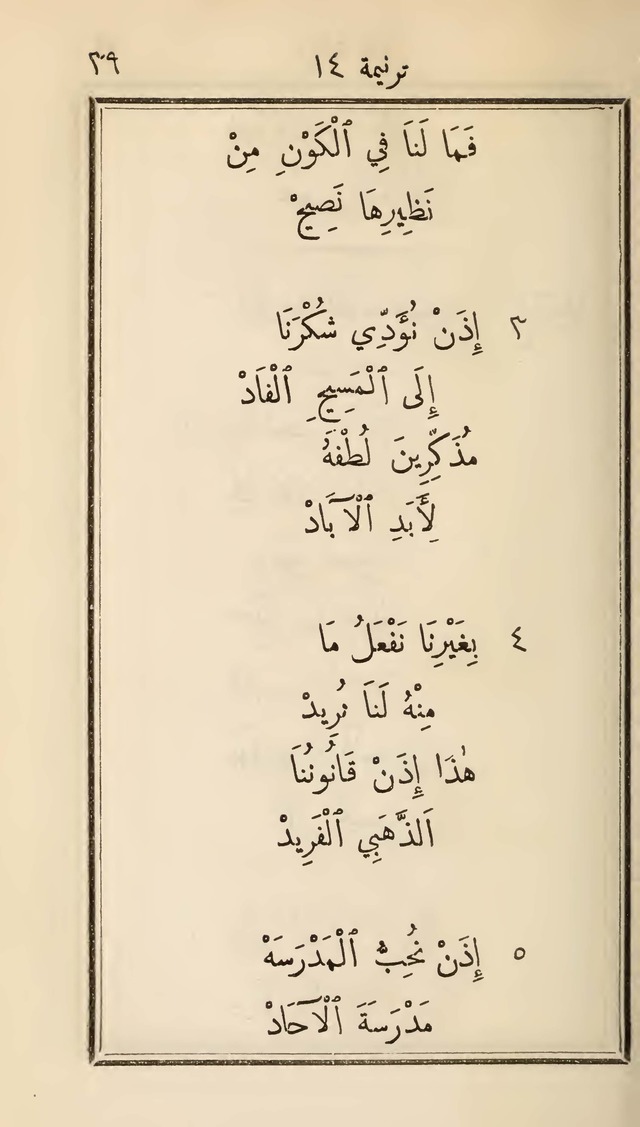 ترنيمة ١٤ ٣٩
فَمَا لَنَا فِي ٱلْكَوْنِ مِنْ
نَظِيرِهَا نَصِيحْ
٣ إِذَنْ نُؤَدِّي شُكْرَنَا
إِلَى ٱلْمَسِيحِ ٱلْفَادْ
مُذَكِّرِينَ لُطْفَهُ
لِأَبَدِ ٱلْآبَادْ
٤ بِغَيْرِنَا نَفْعَلُ مَا
مِنْهُ لَنَا نُرِيدْ
هٰذَا إِذَنْ قَانُونُنَا
اَلذَّهَبِي ٱلْفَرِيدْ
٥ إِذَنْ نُحِبُّ ٱلْمَدْرَسَهْ
مَدْرَسَةَ ٱلْآحَادْ